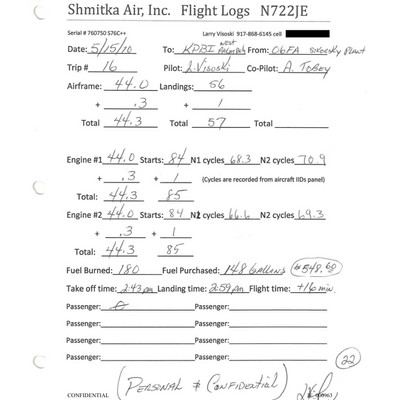 Shmitka Air, Inc. Flight Logs N722JE
Serial # 760750 S76C++ Larry Visoski 917-868-6145 cell
Date: 5/15/10 To: KPBI West Palm Bch From: 06FA
Trip # 16 Pilot: L. Visoski Co-Pilot: A. Tobey
Airframe: 44.0 Landings: 56
+ .3 + 1
Total 44.3 Total 57 Total
Engine #1 44.0 Starts: 84 N1 cycles 68.3 N2 cycles 70.9
+ .3 + 1 (Cycles are recorded from aircraft IIDs panel)
Total: 44.3 85
Engine #2 44.0 Starts: 84 N1 cycles 66.6 N2 cycles 69.3
+ .3 + 1
Total: 44.3 85
Fuel Burned: 180 Fuel Purchased: 148 Gallons $548.68
Take off time: 2:43 pm Landing time: 2:59 pm Flight time: +16 min.
Passenger: Passenger:
Passenger: Passenger:
Passenger: Passenger:
Passenger: Passenger:
22
(Personal & Confidential)
CONFIDENTIAL